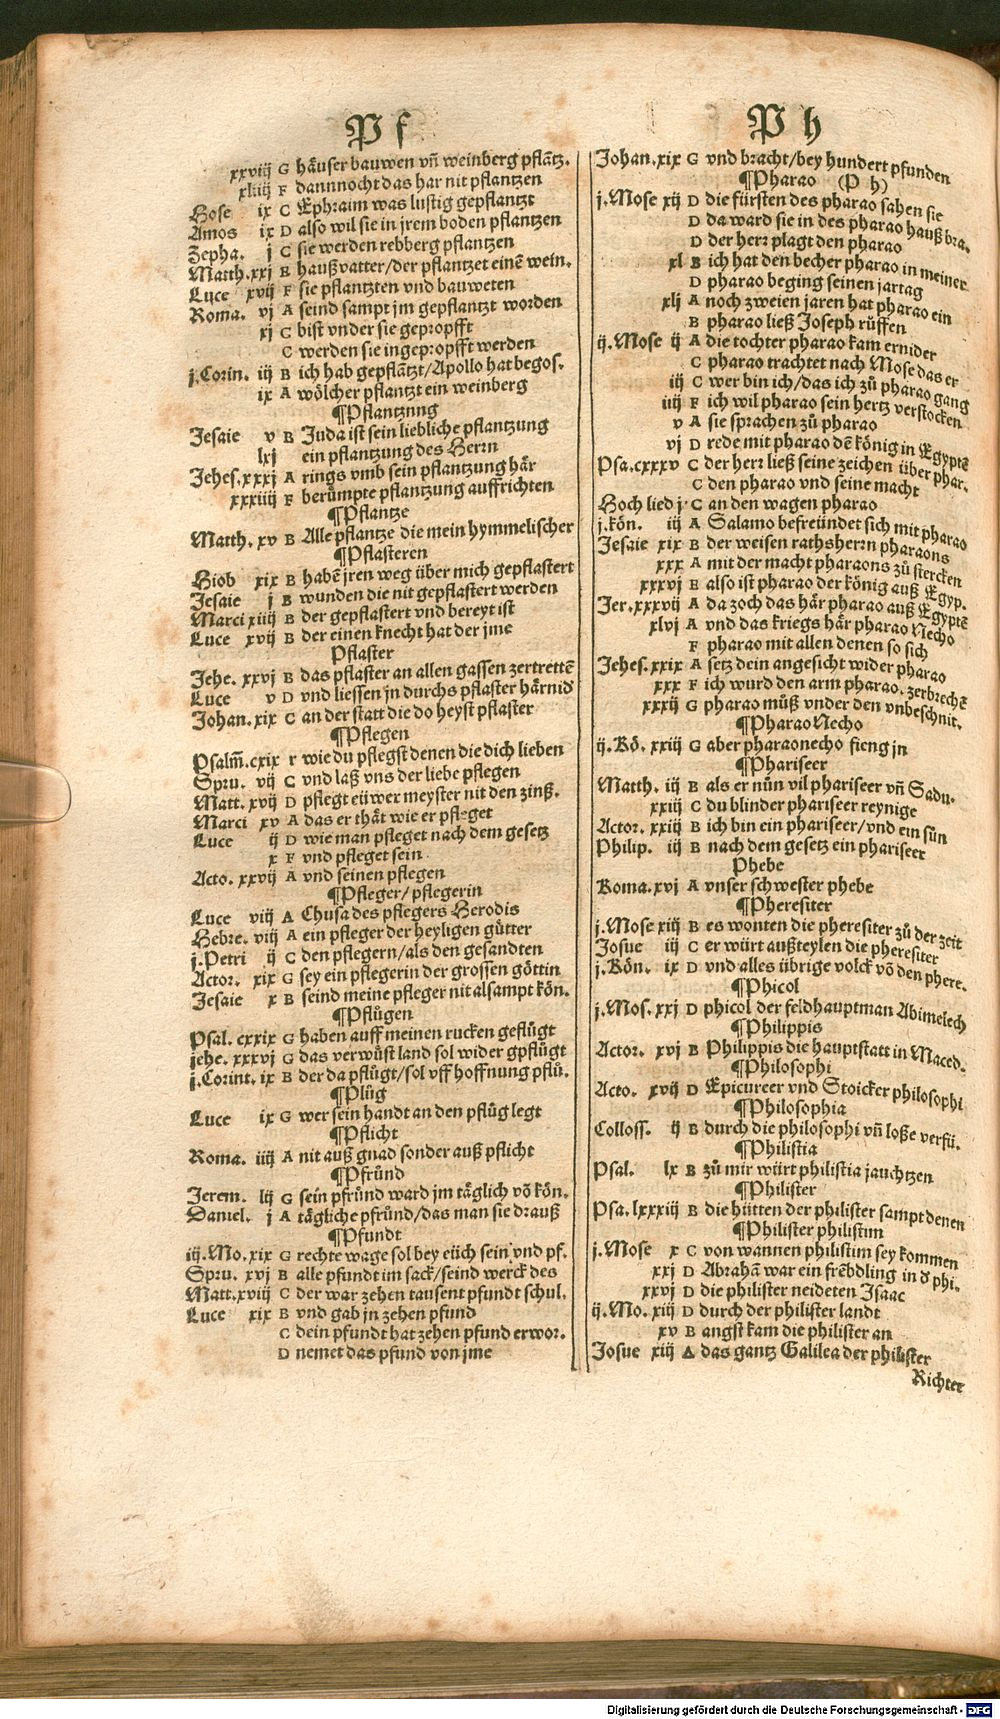 P f
xxviij G häuser bauwen vñ weinberg pflãtz.
xliij F dannnocht das har nit pflantzen
Hose ix C Ephraim was lustig gepflantzt
Amos ix D also wil sie in jrem boden pflantzen
Zepha. j C sie werden rebberg pflantzen
Matth. xxj B haußvatter/der pflantzet einē wein.
Luce xvij F sie pflantzten vnd bauweten
Roma. vj A seind sampt jm gepflantzt worden
xj C bist vnder sie gepropfft
C werden sie ingepropfft werden
j.Corin. iij B ich hab gepflãtzt/Apollo hat begos.
ix A wölcher pflantzt ein weinberg
¶Pflantzung
Jesaie v B Juda ist sein liebliche pflantzung
lxj ein pflantzung des Herrn
Jehes. xxxj A rings vmb sein pflantzung här
xxxiiij F berůmpte pflantzung auffrichten
¶Pflantze
Matth. xv B Alle pflantze die mein hymmelischer
¶Pflasteren
Hiob xix B habē jren weg über mich gepflastert
Jesaie j B wunden die nit gepflastert werden
Marci xiiij B der gepflastert vnd bereyt ist
Luce xvij B der einen knecht hat der jme
Pflaster
Jehe. xxvj B das pflaster an allen gassen zertrettē
Luce v D vnd liessen jn durchs pflaster härnid
Johan. xix C an der statt die do heyst pflaster
¶Pflegen
Psalm̃. cxix r wie du pflegst denen die dich lieben
Spru. vij C vnd laß vns der liebe pflegen
Matt. xvij D pflegt eüwer meyster nit den zinß.
Marci xv A das er thät wie er pfleget
Luce ij D wie man pfleget nach dem gesetz
x F vnd pfleget sein
Acto. xxvij A vnd seinen pflegen
¶Pfleger/ pflegerin
Luce viij A Chusa des pflegers Herodis
Hebre. viij A ein pfleger der heyligen gütter
j.Petri ij C den pflegern/als den gesandten
Actor. xix G sey ein pflegerin der grossen göttin
Jesaie x B seind meine pfleger nit alsampt kön.
¶Pflůgen
Psal. cxxix G haben auff meinen rucken geflügt
jehe. xxxvj G das verwüst land sol wider gpflügt
j.Corint. ix B der da pflügt/sol vff hoffnung pflü.
¶Plůg
Luce ix G wer sein handt an den pflůg legt
¶Pflicht
Roma. iiij A nit auß gnad sonder auß pflicht
¶Pfründ
Jerem. lij G sein pfründ ward jm täglich võ kön.
Daniel. j A tägliche pfründ/das man sie drauß
¶Pfundt
iij.Mo. xix G rechte wage sol bey eüch sein vnd pf.
Spru. xvj B alle pfundt im sack/seind werck des
Matt. xviij C der war zehen tausent pfundt schul.
Luce xix B vnd gab jn zehen pfund
C dein pfundt hat zehen pfund erwor.
D nemet das pfund von jme
P h
Johan. xix G vnd bracht/bey hundert pfunden
¶Pharao (P h)
j.Mose xij D die fürsten des pharao sahen sie
D da ward sie in des pharao hauß bra.
D der herr plagt den pharao
xl B ich hat den becher pharao in meiner
D pharao beging seinen jartag
xlj A noch zweien jaren hat pharao ein
B pharao ließ Joseph rüffen
ij.Mose ij A die tochter pharao kam ernider
C pharao trachtet nach Mose das er
iij C wer bin ich/das ich zů pharao gang
iiij F ich wil pharao sein hertz verstocken
v A sie sprachen zů pharao
vj D rede mit pharao dē könig in Egyptē
Psa. cxxxv C der herr ließ seine zeichen über phar.
C den pharao vnd seine macht
Hoch lied j. C an den wagen pharao
j.kön. iij A Salamo befreündet sich mit pharao
Jesaie xix B der weisen rathsherrn pharaons
xxx A mit der macht pharaons zů stercken
xxxvj B also ist pharao der könig auß Egyp.
Jer. xxxvij A da zoch das här pharao auß Egyptē
xlvj A vnd das kriegs här pharao Necho
F pharao mit allen denen so sich
Jehes. xxix A setz dein angesicht wider pharao
xxx F ich wurd den arm pharao. zerbrechē
xxxij G pharao můß vnder den vnbeschnit.
¶Pharao Necho
ij.Kö. xxiij G aber pharaonecho fieng jn
¶Phariseer
Matth. iij B als er nůn vil phariseer vñ Sadu.
xxiij C du blinder phariseer reynige
Actor. xxiij B ich bin ein phariseer/vnd ein sůn
Philip. iij B nach dem gesetz ein phariseer
Phebe
Roma. xvj A vnser schwester phebe
¶Pheresiter
j.Mose xiij B es wonten die pheresiter zů der zeit
Josue iij C er würt außteylen die pheresiter
j.Kön. ix D vnd alles übrige volck võ den phere.
¶Phicol
j.Mos. xxj D phicol der feldhauptman Abimelech
¶Philippis
Actor. xvj B Philippis die hauptstatt in Maced.
¶Philosophi
Acto. xvij D Epicureer vnd Stoicker philosophi
¶Philosophia
Colloss. ij B durch die philosophi vñ loße verfü.
¶Philistia
Psal. lx B zů mir würt philistia jauchtzen
¶Philister
Psa. lxxxiij B die hütten der philister sampt denen
¶Philister philistim
j.Mose x C von wannen philistim sey kommen
xxj D Abrahã war ein frēbdling in d phi.
xxvj D die philister neideten Isaac
ij.Mo. xiij D durch der philister landt
xv B angst kam die philister an
Josue xiij A das gantz Galilea der philister
Richter
Digitalisierung gefördert durch die Deutsche Forschungsgemeinschaft - DFG